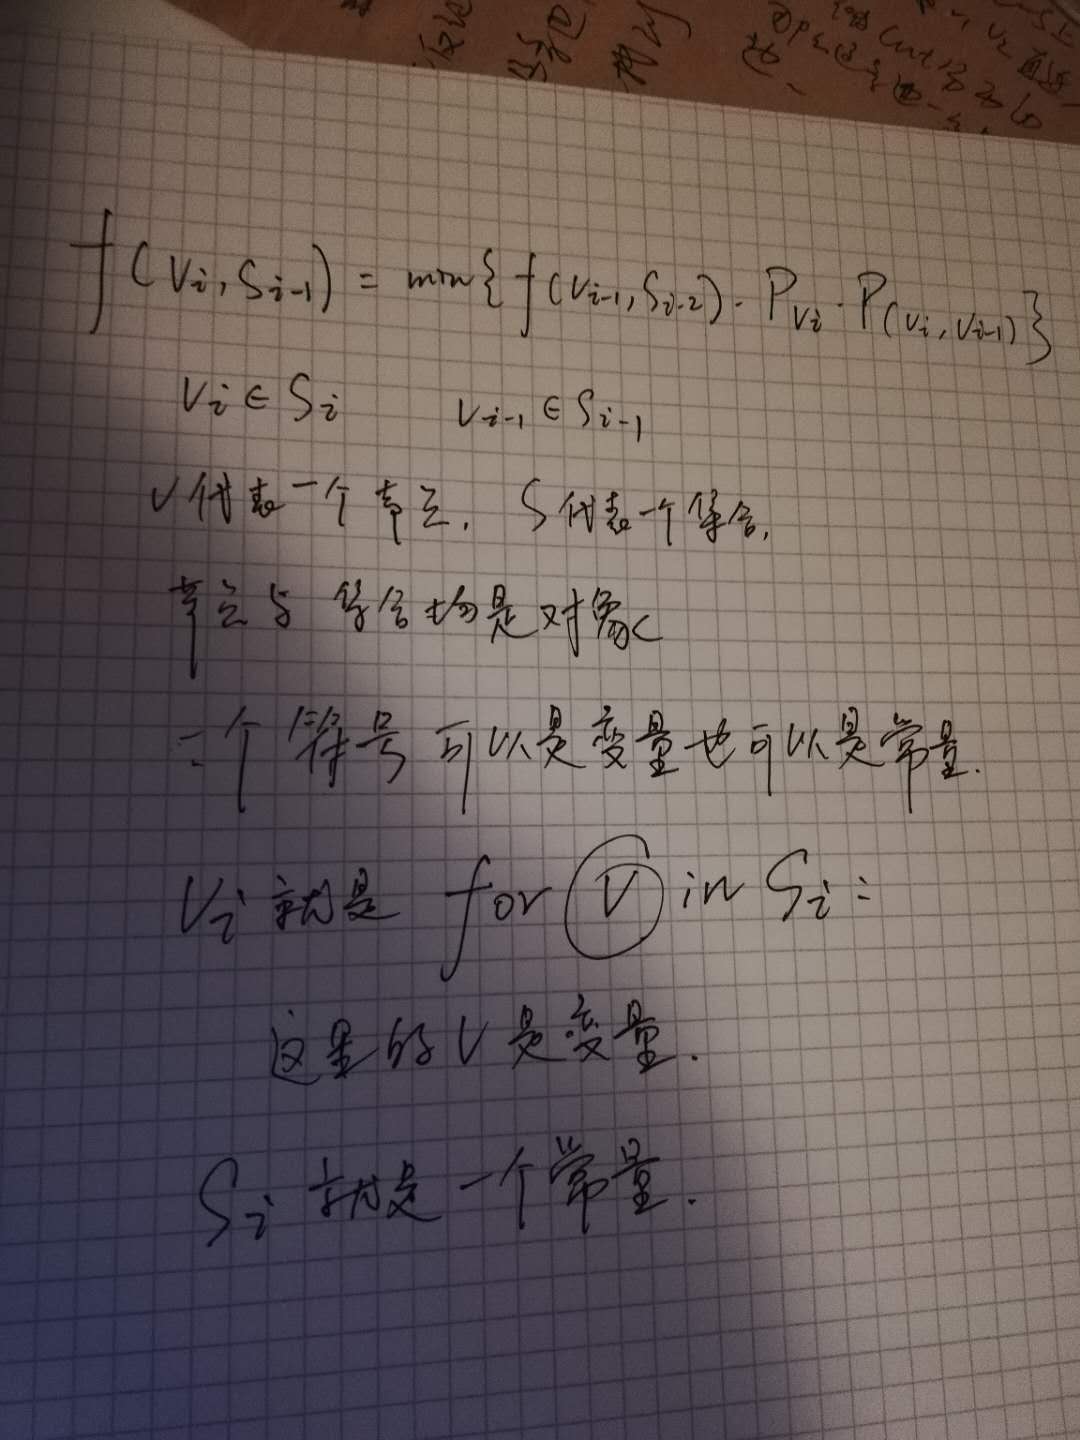 f(Vi, Si-1) = min{f(Vi-1, Si-2)·PVi·P(Vi, Vi-1)}
Vi∈Si Vi-1∈Si-1
V代表一个单元. S代表一个集合,
单元与集合均是对象
一个符号可以是变量也可以是常量.
Vi就是 for V in Si:
这里的V是变量.
Si就是一个常量.